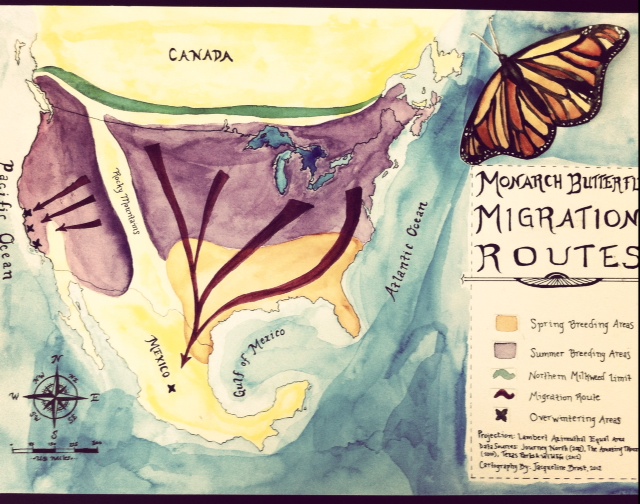 CANADA
Rocky Mountains
Pacific Ocean
Atlantic Ocean
Gulf of Mexico
MEXICO
N
NW NE
W E
SW SE
S
MONARCH BUTTERFL
MIGRATION
ROUTES
Spring Breeding Areas
Summer Breeding Areas
Northern Milkweed Limit
Migration Route
Overwintering Areas
Projection: Lambert Azimuthal Equal Area
Data Sources: Journey North (2012), The Amazing
Texas Parks & Wildlife
Cartography By: Jacqueline 2012